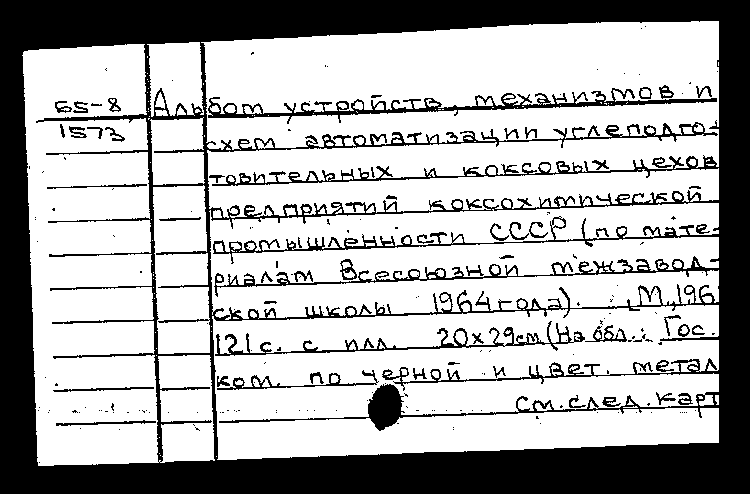 Б5-8 Альбом устройств, механизмов и
1573 схем автоматизации углеподго-
товительных и коксовых цехов
предприятий коксохимической
промышленности СССР (по мате-
риалам Всесоюзной межзавод-
ской школы 1964 года). М., 196
121 с. с илл. 20х29см (На обл.: Гос.
ком. по черной и цвет. метал
см. след. карт